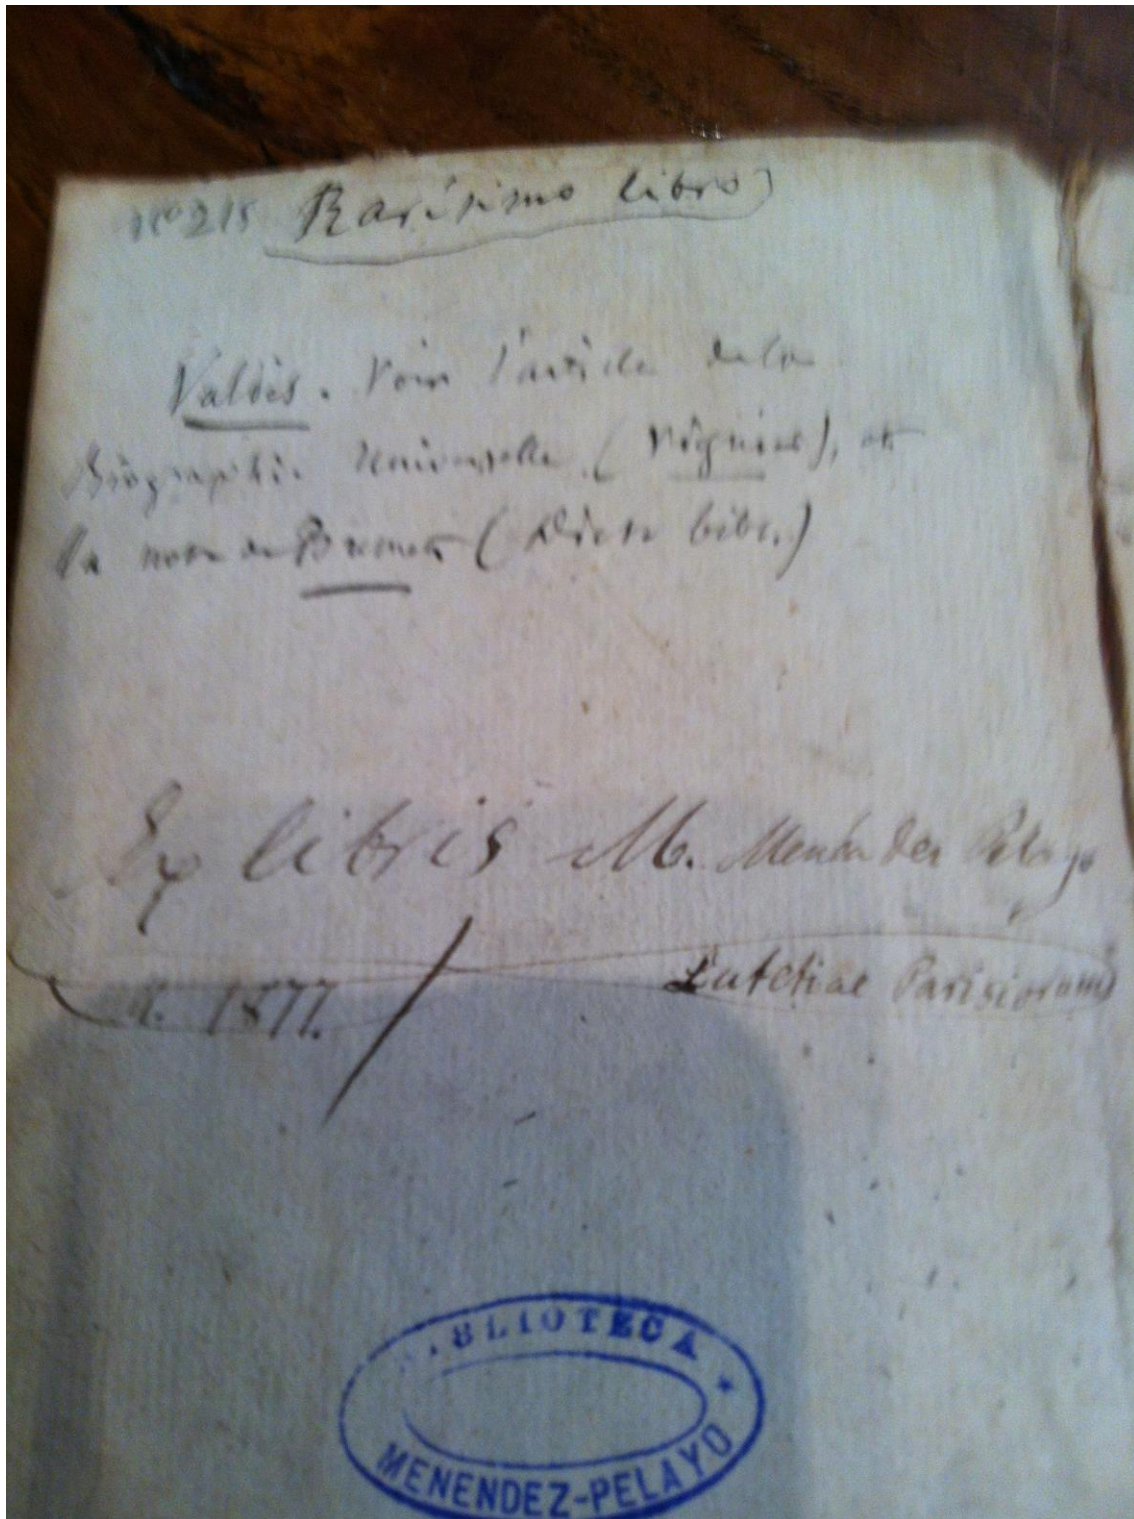 nº 215 Rarísimo libro
Valdés. Voir l'article de la
Biographie Universelle (Vignier), et
la note de Brunet (Dict. bibl.)
Ex libris M. Menéndez Pelayo
1877. Lutetiae Parisiorum
BIBLIOTECA
MENENDEZ-PELAYO